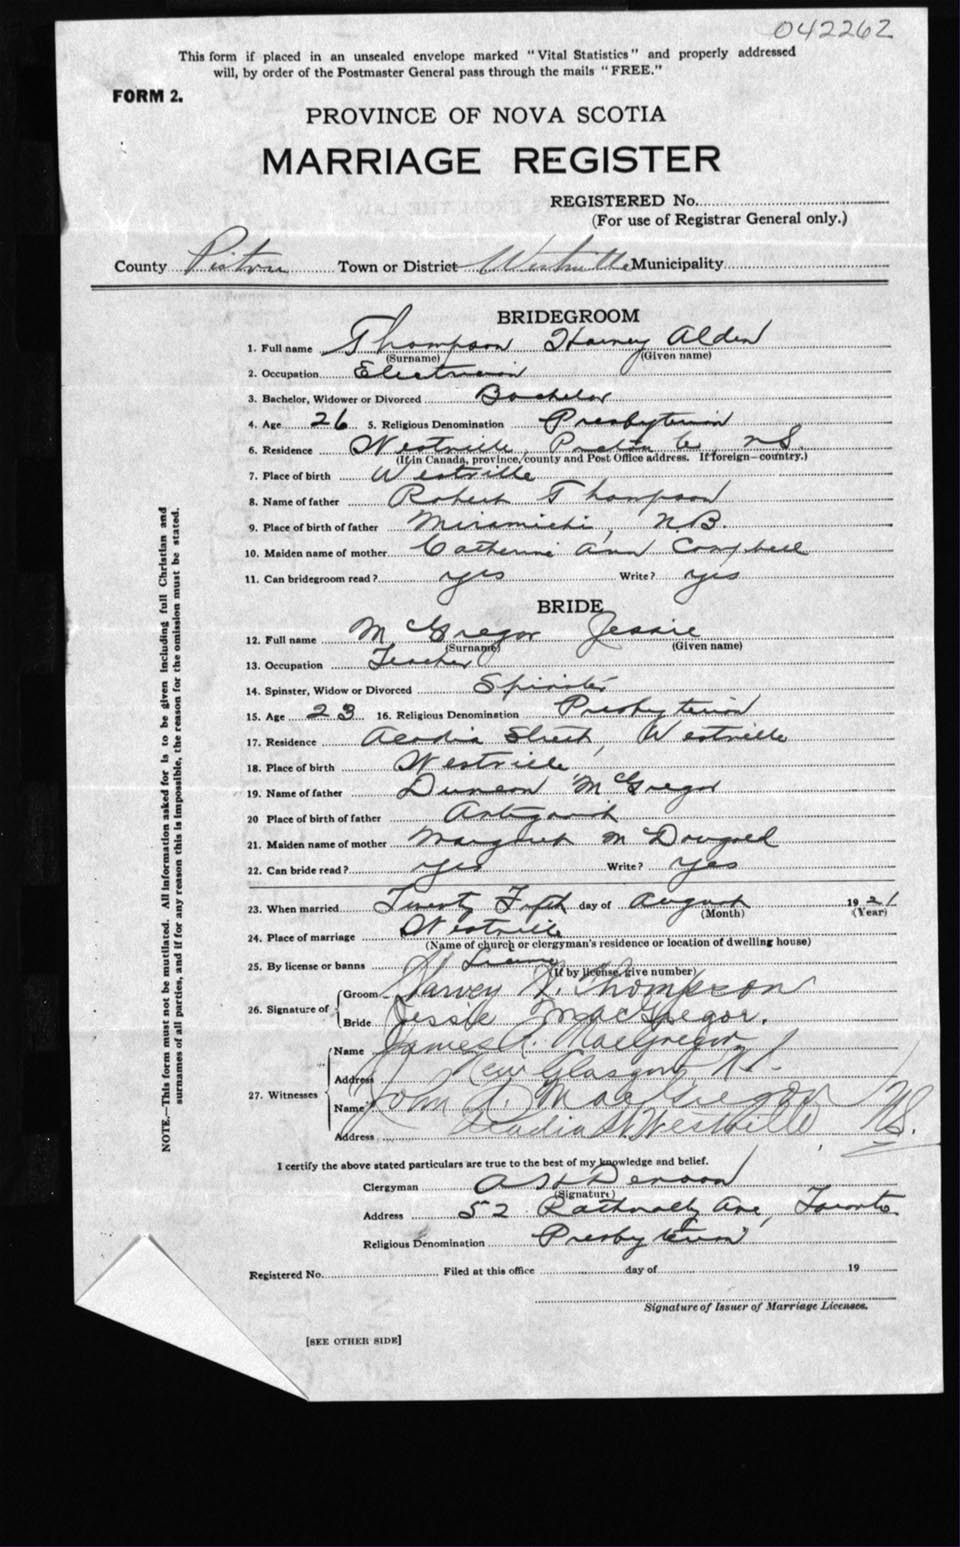 042262
This form if placed in an unsealed envelope marked "Vital Statistics" and properly addressed
will, by order of the Postmaster General pass through the mails "FREE."
FORM 2.
PROVINCE OF NOVA SCOTIA
MARRIAGE REGISTER
REGISTERED No.
(For use of Registrar General only.)
County Pictou Town or District Westville Municipality
BRIDEGROOM
1. Full name Thompson Harvey Alden
(Surname) (Given name)
2. Occupation Electrician
3. Bachelor, Widower or Divorced Bachelor
4. Age 26 5. Religious Denomination Presbyterian
6. Residence Westville, Pictou Co, NS.
(If in Canada, province, county and Post Office address. If foreign—country.)
7. Place of birth Westville
8. Name of father Robert Thompson
9. Place of birth of father Miramichi, NB.
10. Maiden name of mother Catherine Ann Campbell
11. Can bridegroom read? yes Write? yes
BRIDE
12. Full name McGregor Jessie
(Surname) (Given name)
13. Occupation Teacher
14. Spinster, Widow or Divorced Spinster
15. Age 23 16. Religious Denomination Presbyterian
17. Residence Acadia Street, Westville
18. Place of birth Westville
19. Name of father Duncan McGregor
20 Place of birth of father Antigonish
21. Maiden name of mother Margaret McDougald
22. Can bride read? yes Write? yes
23. When married Twenty Fifth day of August 1921
(Month) (Year)
24. Place of marriage Westville
(Name of church or clergyman's residence or location of dwelling house)
25. By license or banns License
(If by license, give number)
26. Signature of Groom Harvey A. Thompson
Bride Jessie MacGregor.
27. Witnesses Name James R. MacGregor
Address New Glasgow N.S.
Name John A. MacGregor
Address Acadia St. Westville N.S.
I certify the above stated particulars are true to the best of my knowledge and belief.
Clergyman
(Signature)
Address 52 Rathnally Ave, Toronto
Religious Denomination Presbyterian
Registered No. Filed at this office day of 19
Signature of Issuer of Marriage Licenses.
[SEE OTHER SIDE]
NOTE.—This form must not be mutilated. All information asked for is to be given including full Christian and
surnames of all parties, and if for any reason this is impossible, the reason for the omission must be stated.